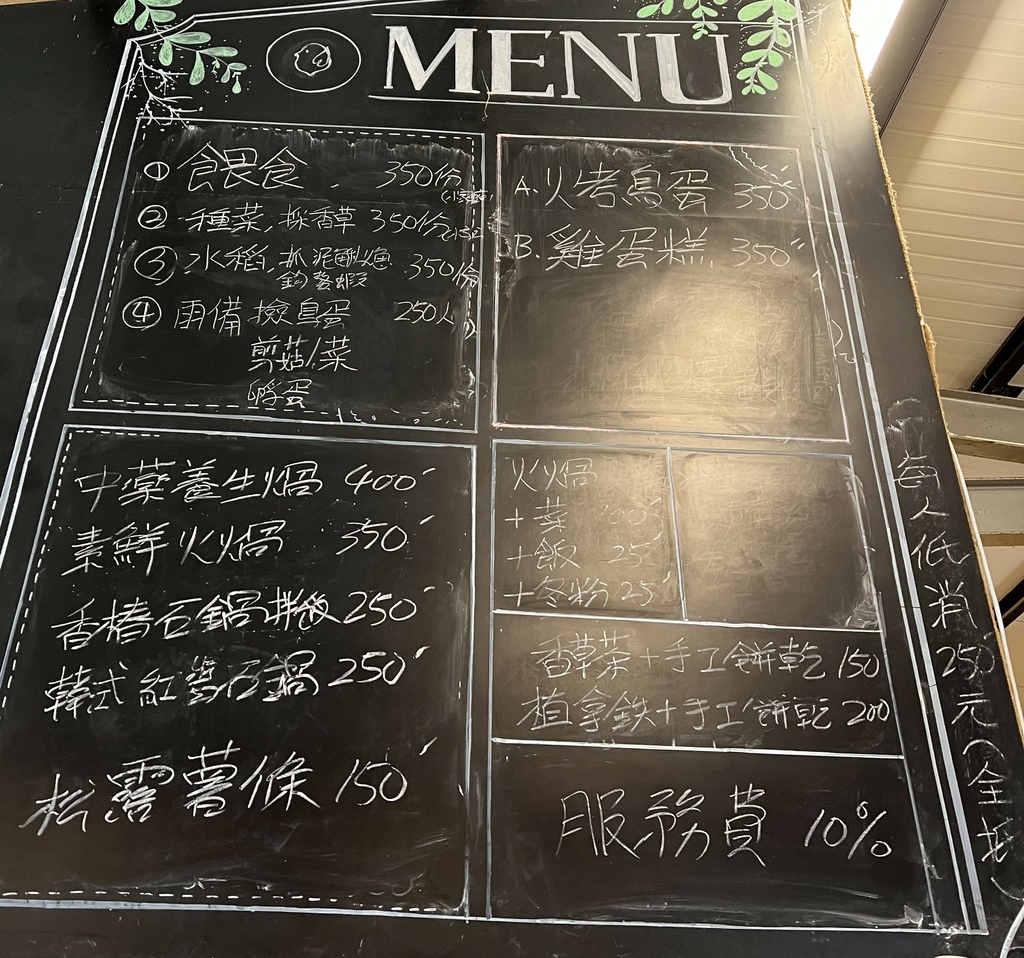 MENU
① 餵食 350份
② 種菜,採香草 350份
③ 水稻,抓泥鰍、魚 350份
釣螯蝦
④ 雨備 撿鳥蛋 250人
剪菇/菜
孵蛋
A. 火烤鳥蛋 350
B. 雞蛋糕 350
中藥養生火鍋 400
素鮮火鍋 350
香椿石鍋拌飯 250
韓式紅醬石鍋 250
松露薯條 150
火鍋
+菜 100
+飯 25
+冬粉 25
香草茶+手工餅乾 150
植拿鐵+手工餅乾 200
服務費 10%
每人低消250元(全抵)